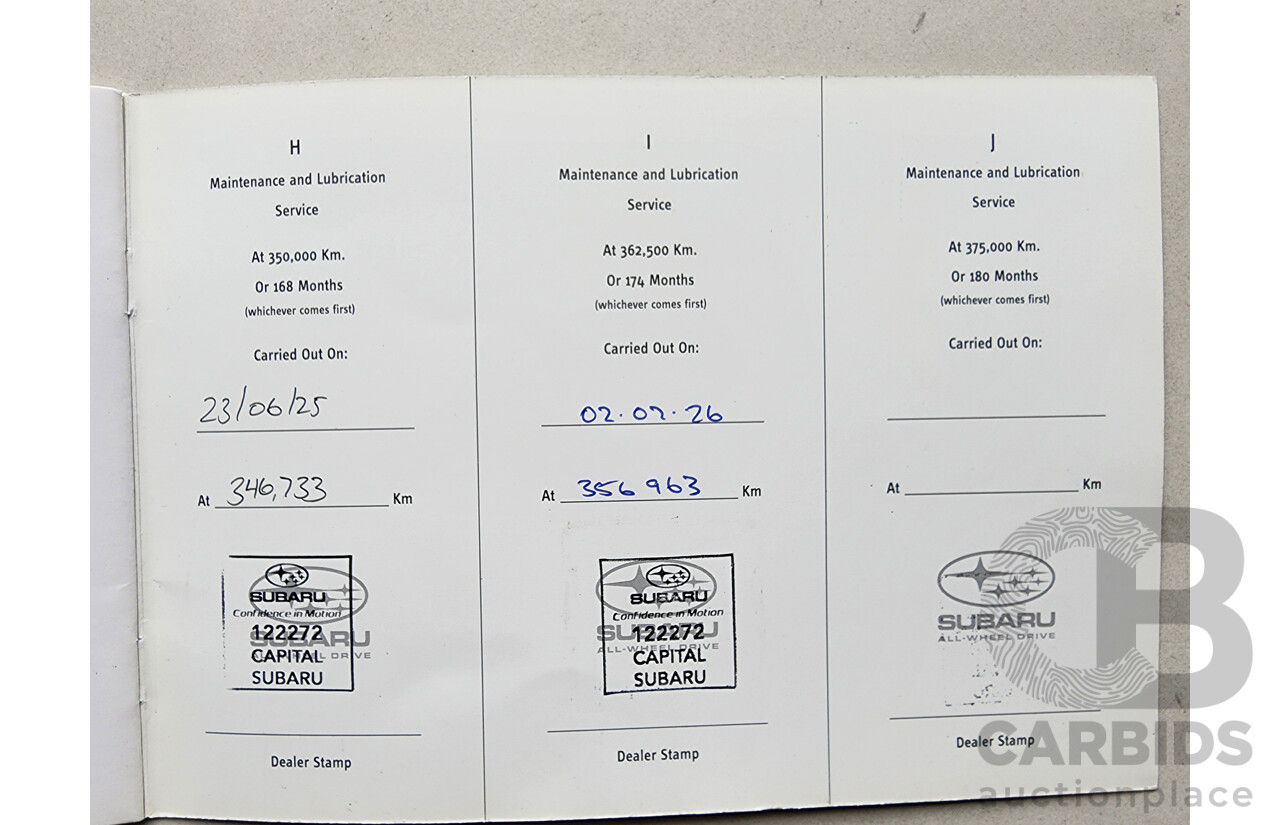 H
Maintenance and Lubrication
Service
At 350,000 Km.
Or 168 Months
(whichever comes first)
Carried Out On:
23/06/25
At 346,733 Km
SUBARU
Confidence in Motion
122272
CAPITAL
SUBARU
SUBARU
ALL-WHEEL DRIVE
Dealer Stamp
I
Maintenance and Lubrication
Service
At 362,500 Km.
Or 174 Months
(whichever comes first)
Carried Out On:
02.02.26
At 356 963 Km
SUBARU
Confidence in Motion
122272
CAPITAL
SUBARU
SUBARU
ALL-WHEEL DRIVE
Dealer Stamp
J
Maintenance and Lubrication
Service
At 375,000 Km.
Or 180 Months
(whichever comes first)
Carried Out On:
At Km
SUBARU
ALL-WHEEL DRIVE
Dealer Stamp
CB
CARBIDS
auctionplace